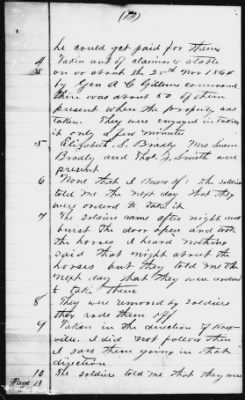 (12)
he could get paid for them
4 Taken out of claimants stable
5 on or about the 20th Nov 1864
by Gen A C Gillems command
there was about 50 of them
present when the property was
taken. They were engaged in taking
it only a few minutes
5 Elizabeth S. Bradly Mrs Susan
Bradly and Thos. S. Smith were
present
6 None that I know of: the soldiers
told me the next day that they
were orderd to take it
7 The soldiers came after night and
burst the door open and took
the horses I heard nothing
said that night about the
horses but they told me the
next day that they were orderd
to take them
8 They were removed by soldiers
they rode them off
9 Taken in the direction of Knox-
ville. I did not follow them
I saw them going in that
direction
10 The soldiers told me that they were
Page 13